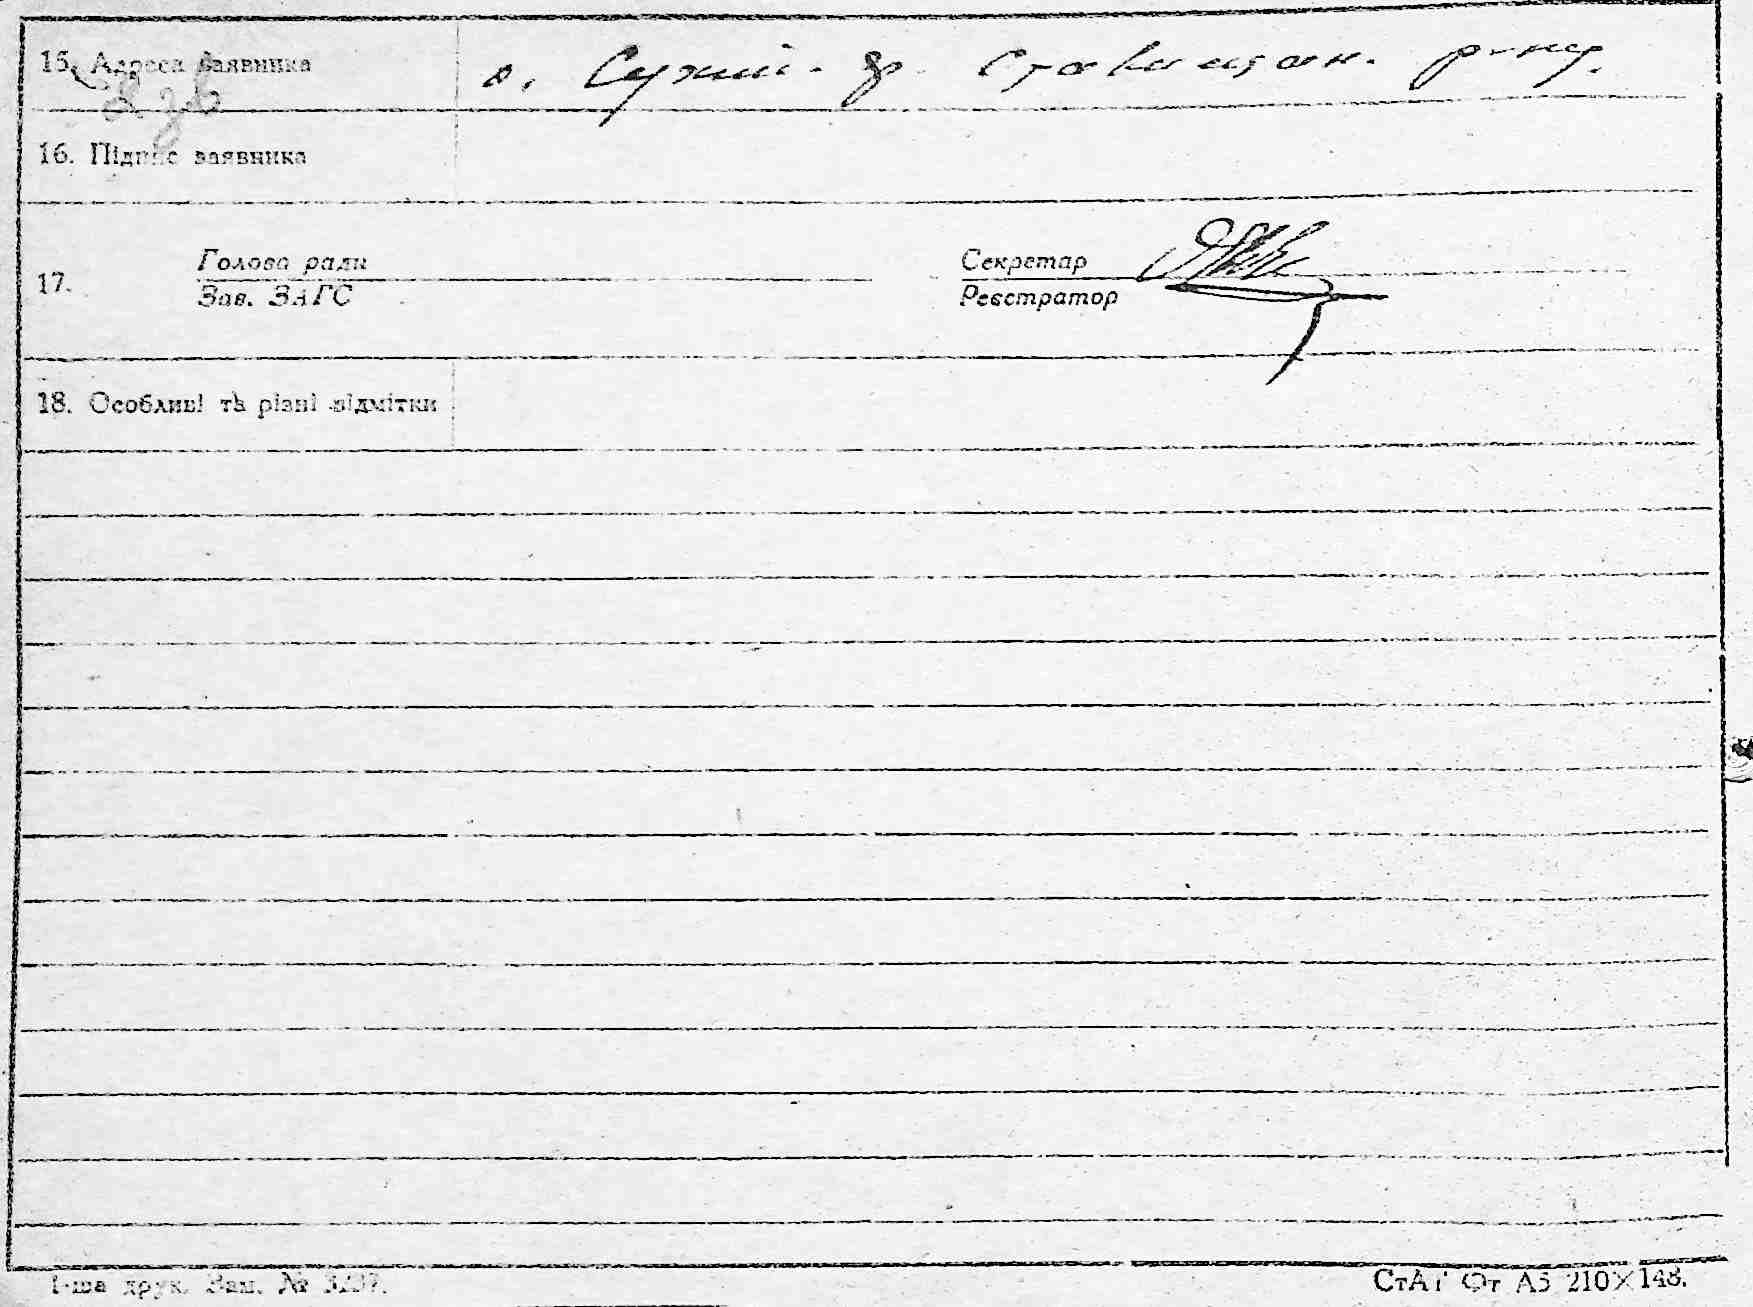 15. Адреса заявника с. Сухий-Яр Ставищан. р-ну.
16. Підпис заявника
17. Голова ради Секретар
Зав. ЗАГС Реєстратор
18. Особливі та різні відмітки
1-ша друк. Зам. №
СтАт Фт А5 210×148.